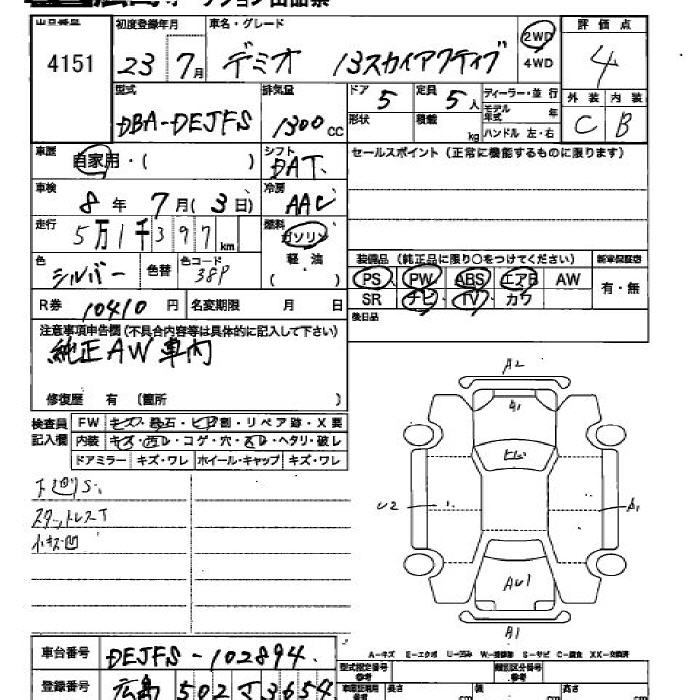 出品番号 初度登録年月 車名・グレード 2WD 評価点
4151 23 7月 デミオ 13スカイアクティブ 4WD 4
型式 排気量 ドア 5 定員 5人 ディーラー・並行 外装 内装
DBA-DEJFS 1300cc 形状 積載 kg モデル年式 年 C B
ハンドル 左・右
車歴 自家用・( ) シフト DAT セールスポイント (正常に機能するものに限ります)
車検 8年 7月(3日) 冷房 AAC
走行 5万1千397km 燃料 ガソリン
軽油
( )
色 シルバー 色替 色コード 38P
装備品 (純正品に限り○をつけてください) 新車保証書
PS PW ABS エアB AW 有・無
SR ナビ・TV・カワ
R券 10410円 名変期限 月 日 後日品
注意事項申告欄(不具合内容等は具体的に記入して下さい)
純正AW車内
修復歴 有 〔箇所 〕
検査員記入欄 FW キズ・飛石・ヒビ割・リペア跡・X要
内装 キズ・汚レ・コゲ・穴・スレ・ヘタリ・破レ
ドアミラー キズ・ワレ ホイール・キャップ キズ・ワレ
スタットレスT
小キズ凹
A2
A1
U2
A1
AU1
A1
A-キズ E-エクボ U-凹み W-補修跡 S-サビ C-腐食 XX-交換済
車台番号 DEJFS-102894
型式指定番号 参考 類別区分番号 参考
登録番号 広島 502 3654
長さ cm 幅 cm 高さ cm